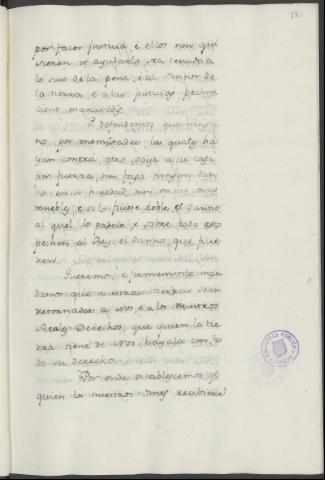 por facer justicia, é ellos non qui
sieren ir ayudarlo, sea tenudo a
lo suso de la pena, é al Sennor de
la tierra, é a las justicias pechen
cient maravedis.
E defendemos que ningu
no por enemistades las quales ha
yan contra otro, vaya a su casa
con fuerza, nin faga ningun dan
no en su heredad, nin en sus cosas
muebles, e si lo ficiere doble el danno
al quel lo padece, e sobre todo esto
pechen al Rey el danno que ficie
ren.
Queremos, e firmemente man
damos que nuestras tierras sean
retornadas a Nos, é a los nuestros
Reales Derechos, que quien la tie
rra tiene de Nos, hayala con to
do su derecho.
Por ende establescemos qe
quien los nuestros omes recibiere